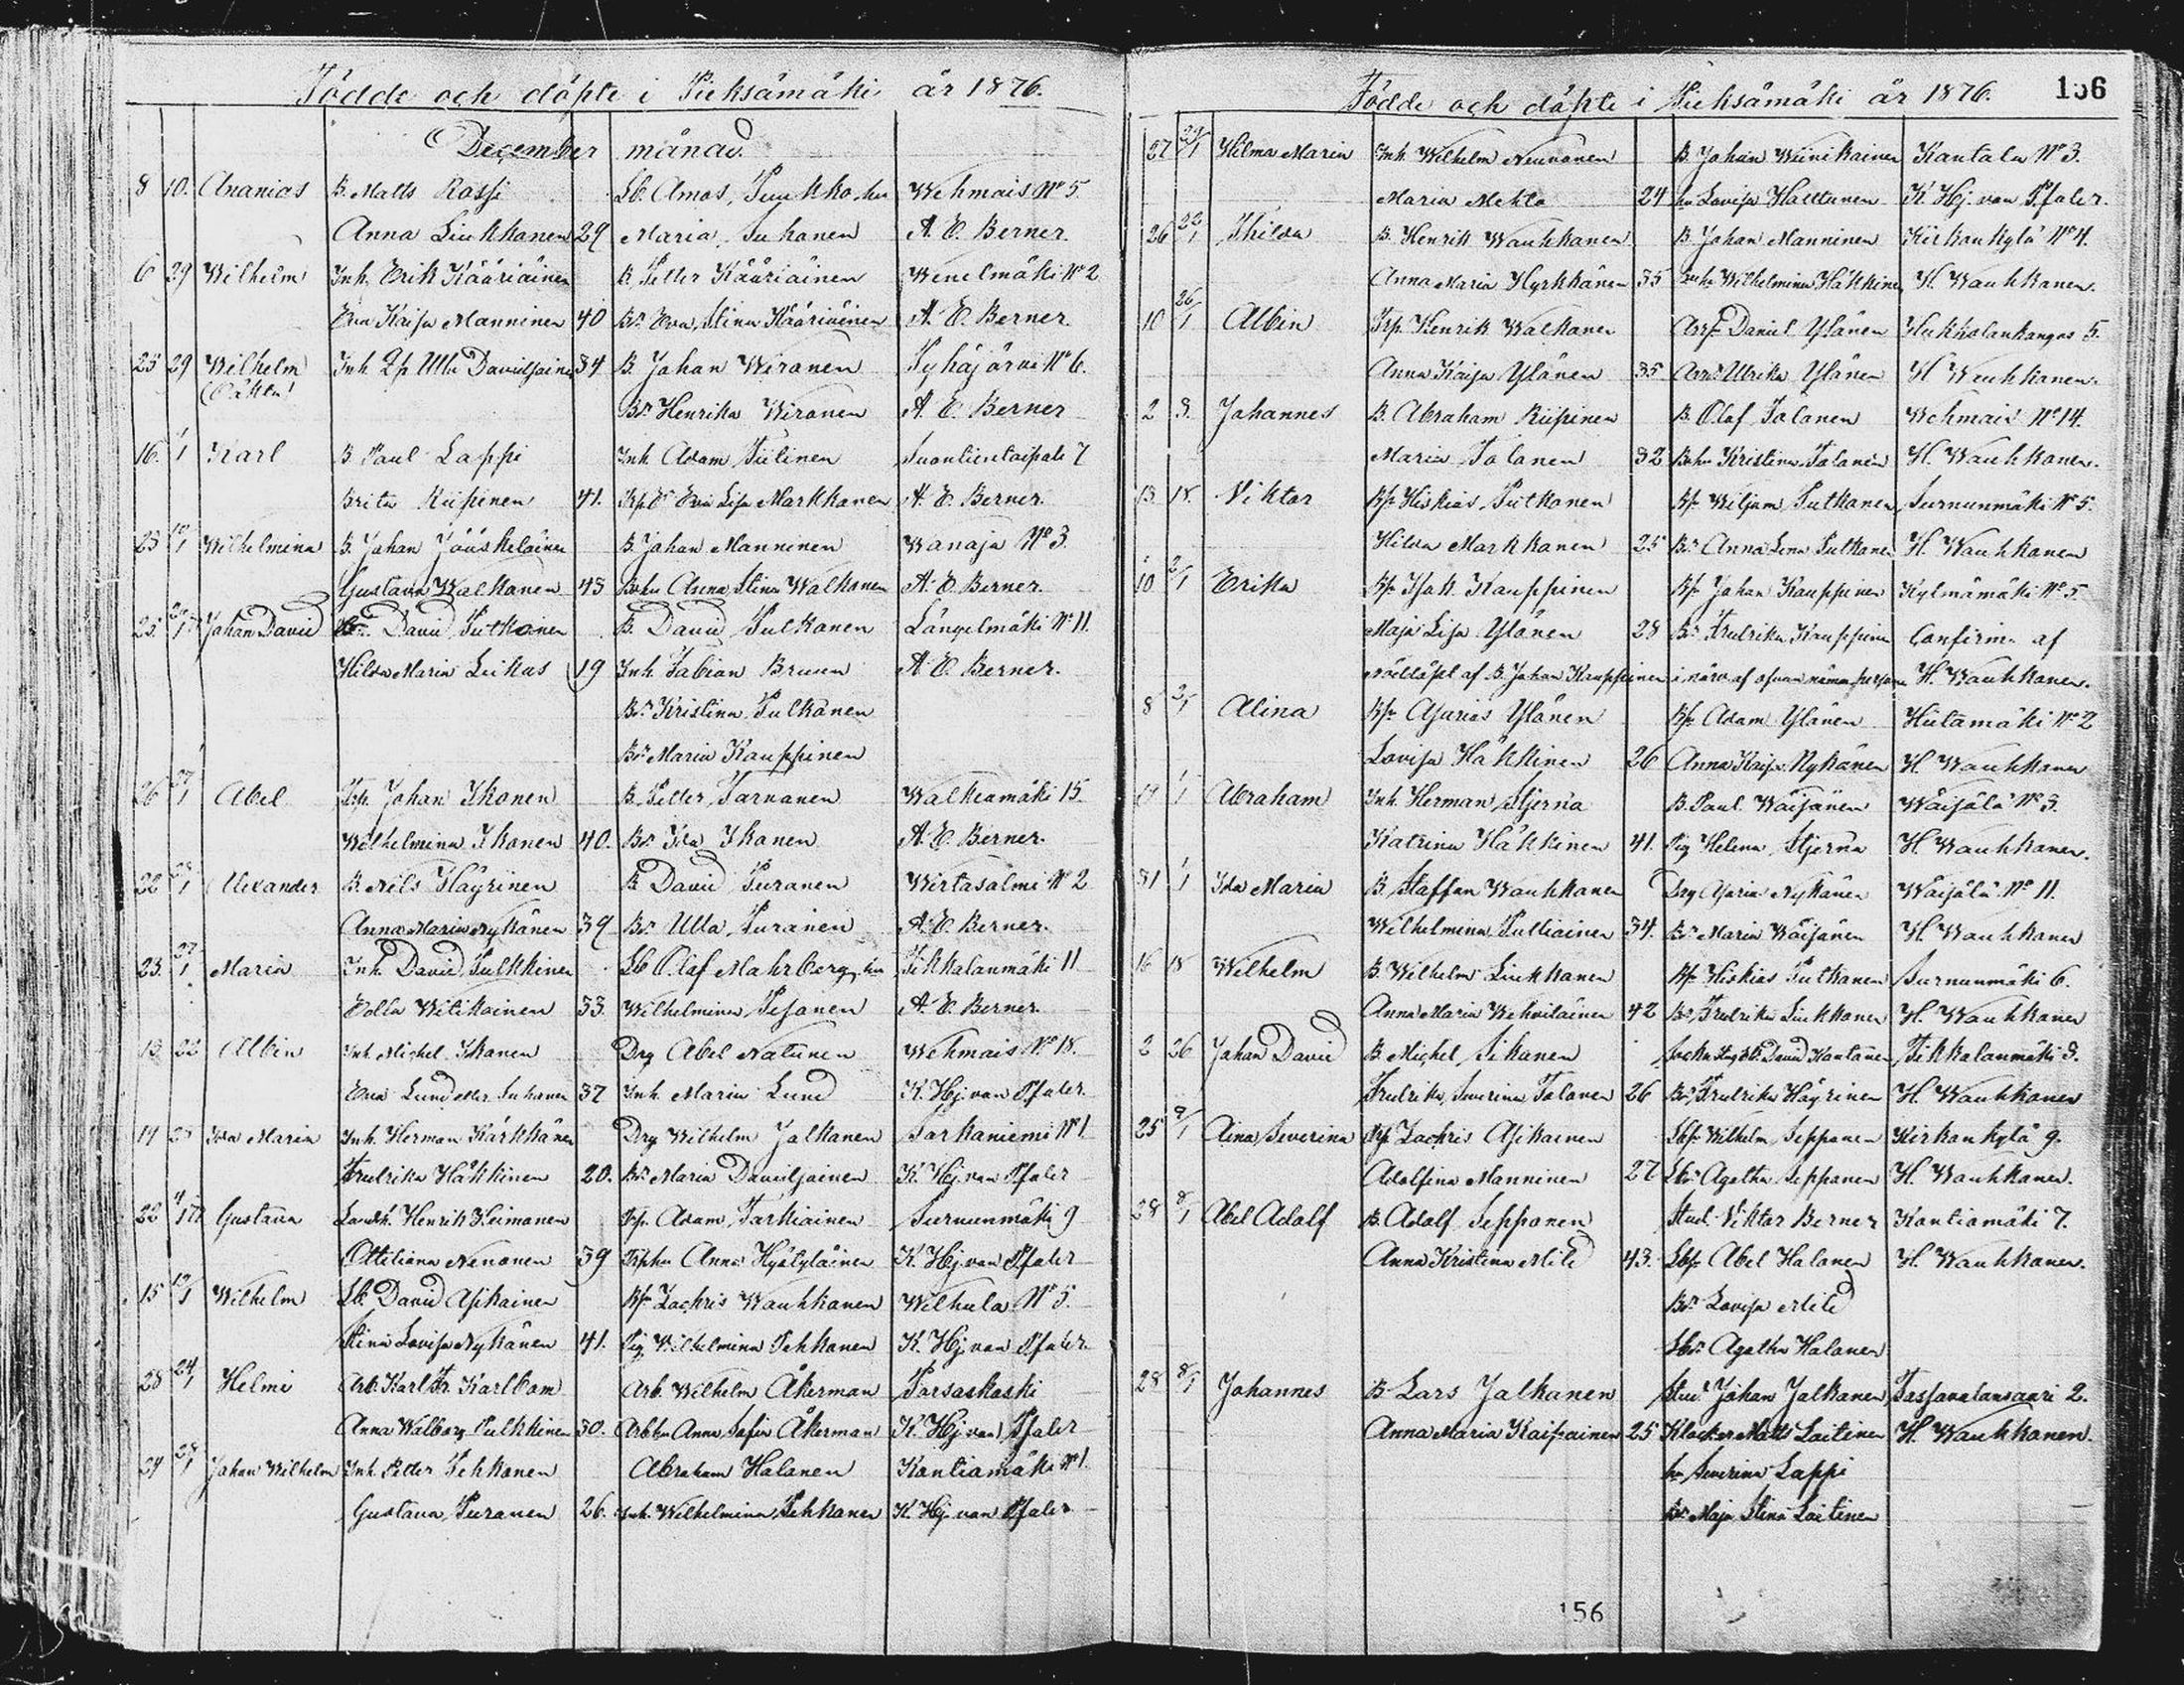 Födde och döpte i Pieksämäki år 1876.
December månad.
8 10. Ananias B. Matts Rossi Lb. Amos Puukko, hu Wehmais No 5.
Anna Liukkonen 29 Maria Suhonen A. E. Berner.
6 29 Wilhelm Inh. Erik Kääriäinen B. Petter Kääriäinen Wenetmäki No 2
Eva Kaisa Manninen 40 Bdr Eva Stina Kääriäinen A. E. Berner.
23 29 Wilhelm Inh. Qp Ulla Davidsainen 34 B. Johan Wironen Pyhäjärvi No 6.
(Oäkta) Bdr Henrika Wironen A. E. Berner
16. 1/1 Karl B. Paul Lappi Inh. Adam Piilinen Suontientaipale 7
Brita Riipinen 41. Eva Lisa Markkanen A. E. Berner.
23 10/1 Wilhelmina B. Johan Jääskeläinen B. Johan Manninen Wanaja No 3.
Gustava Walkonen 43 Bohu Anna Stina Walkonen A. E. Berner.
25. Johan David David Putkonen B. David Pulkonen Längelmäki No 11.
Hilda Maria Leikas 19 Inh. Fabian Bruun A. E. Berner.
Bdr Kristina Pulkonen
Bdr Maria Kauppinen
26 27/1 Abel Trp. Johan Ikonen B. Petter Tarvanen Walkeamäki 15.
Wilhelmina Ikonen 40. Bdr Ida Ikonen A. E. Berner.
22 28/1 Alexander B. Nils Häyrinen B. David Puranen Wirtasalmi No 2
Anna Maria Nykänen 39 Bdr Ulla Puranen A. E. Berner.
23. 27/1 Maria Inh. David Pulkkinen Lb Olof Mahrberg, hu Pikkalanmäki 11
Ella Witikainen 33. Wilhelmina Pesonen A. E. Berner.
13 22 Albin Inh. Michel Ikonen Drg Abel Natunen Wehmais No 18.
Eva Lund eller Suhonen 37 Inh. Maria Lund K. Hj. von Pfaler.
14 28 Ida Maria Inh. Herman Kärkkänen Drg Wilhelm Jalkanen Sarkaniemi No 1
Fredrika Häkkinen 20. Bdr Maria Davidsainen K. Hj. von Pfaler
22 Gustava Landb. Henrik Heimonen Trp. Adam Tarkiainen Surnunmäki 9
Ottiliana Nenonen 39 Trphu Anna Hyötyläinen K. Hj. von Pfaler
15 19/1 Wilhelm Lb. David Asikainen Bp. Zachris Wauhkonen Wilhula No 5.
Stina Lovisa Nykänen 41. Pig Wilhelmina Pehkonen K. Hj. von Pfaler.
28 24/1 Helmi Arb. Karl Fr. Karlbom Arb. Wilhelm Åkerman Parsaskoski
Anna Walborg Pulkkinen 30. Arbhu Anna Sofia Åkerman K. Hj. von Pfaler
24 28/1 Johan Wilhelm Inh. Petter Pehkonen Abraham Halonen Kontiomäki No 1.
Gustava Puranen 26. Inh. Wilhelmina Pehkonen K. Hj. von Pfaler
Födde och döpte i Pieksämäki år 1876. 156
27 29/1 Hilma Maria Inh. Wilhelm Nuuvonen B. Johan Wiinikainen Kantala No 3.
Maria Mehto 24 hu Lovisa Hallunen K. Hj. von Pfaler.
26 22/1 Hilda B. Henrik Wauhkonen B. Johan Manninen Kirkonkylä No 4.
Anna Maria Hyrkkänen 35 Wilhelmina Häkkinen H. Wauhkonen.
10 26/1 Albin Trp. Henrik Walkonen Daniel Ylönen Hukkolankangas 5.
Anna Kaisa Ylönen 35 Ulrika Ylönen H. Wauhkonen.
2 3. Johannes B. Abraham Riipinen B. Olof Tolonen Wehmais No 14.
Maria Tolonen 32 Bohu Kristina Tolonen H. Wauhkonen.
13 18. Viktor Bp. Hiskias Putkonen Bp. Wiljam Putkonen Surnunmäki No 5.
Hilda Markkanen 25 Bdr Anna Lena Putkonen H. Wauhkonen
10 2/1 Erika Bp. Isak Kauppinen Bp. Johan Kauppinen Kylmämäki No 5.
Maja Lisa Ylönen 28 Bdr Fredrika Kauppinen Confirm. af
Nöddöpt af B. Johan Kauppinen i närv. af ofvan nämn. person. H. Wauhkonen.
8 2/1 Alina Bp. Asarias Ylönen Bp. Adam Ylönen Hiitamäki No 2
Lovisa Häkkinen 26 Anna Kaisa Nykänen H. Wauhkonen
19 1/1 Abraham Inh. Herman Stjerna B. Paul Wäisänen Wäisälä No 3.
Katrina Häkkinen 41. Pig Helena Stjerna H. Wauhkonen.
31 1/1 Ida Maria B. Staffan Wauhkonen Drg Asarias Nykänen Wäisälä No 11.
Wilhelmina Pulliainen 34. Bdr Maria Wäisänen H. Wauhkonen
16 18 Wilhelm B. Wilhelm Liukkonen Bp. Hiskias Putkonen Surnunmäki 6.
Anna Maria Wehviläinen 42 Bdr Fredrika Liukkonen H. Wauhkonen
2 26 Johan David B. Michel Sikanen David Kontanen Pikkalanmäki 3.
Fredrika Severina Tolonen 26 Bdr Fredrika Häyrinen H. Wauhkonen
25 9/1 Aina Severina Bp. Zachris Asikainen Lbp. Wilhelm Sepponen Kirkonkylä 9.
Adolfina Manninen 27 Lbdr Agatha Sepponen H. Wauhkonen.
28 8/1 Abel Adolf B. Adolf Sepponen Stud. Viktor Berner Kontiomäki 7.
Anna Kristina Mild 43. Lbp. Abel Halonen H. Wauhkonen.
Bdr Lovisa Mild
Lbdr Agatha Halonen
28 8/1 Johannes B. Lars Jalkanen Stud. Johan Jalkanen Tassavalansaari 2.
Anna Maria Kaipainen 25 Klockar Matts Laitinen H. Wauhkonen.
hu Severina Lappi
Bdr Maja Stina Laitinen
156